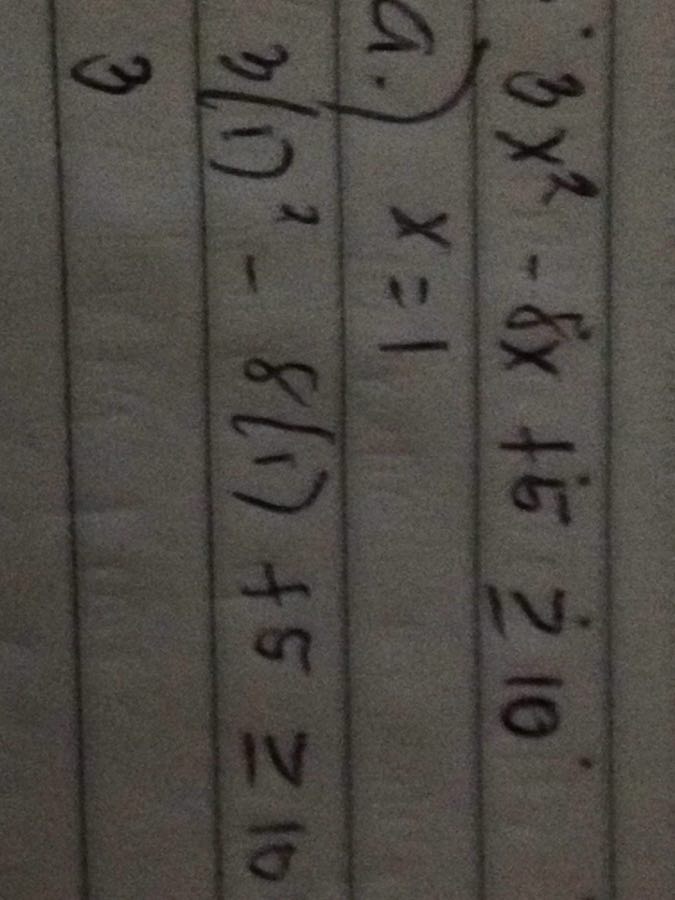 3x² - 8x + 5 ≥ 10
a.) x = 1
3(1)² - 8(1) + 5 ≥ 10
3